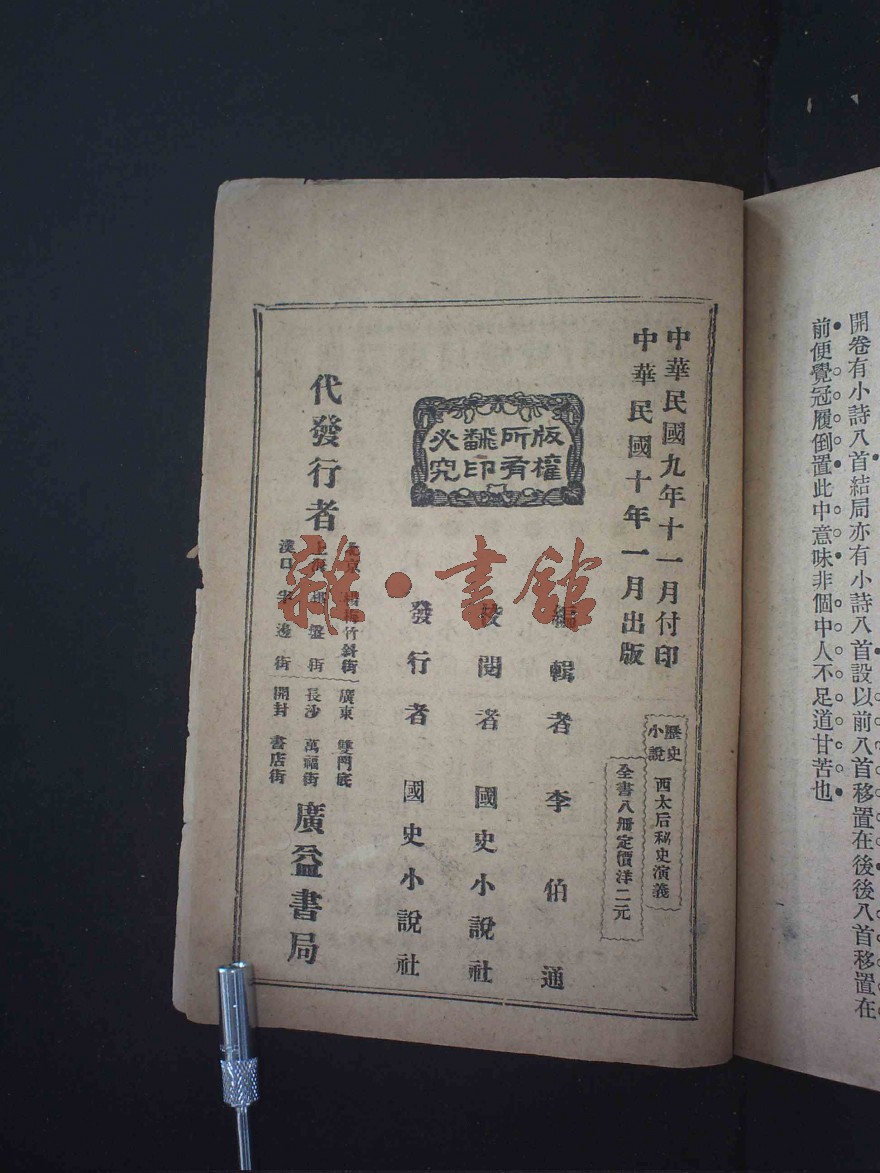 開卷有小詩八首結局亦有小詩八首設以前八首移置在後後八首移置在
前便覺冠履倒置此中意味非個中人不足道甘苦也
中華民國九年十一月付印
中華民國十年一月出版
歷史小說
西太后秘史演義
全書八册定價洋二元
版權所有翻印必究
編輯者 李伯通
校閱者 國史小說社
發行者 國史小說社
代發行者
北京 楊梅竹斜街
上海 棋盤街
漢口 邊街
廣東 雙門底
長沙 萬福街
開封 書店街
廣益書局
雜·書館